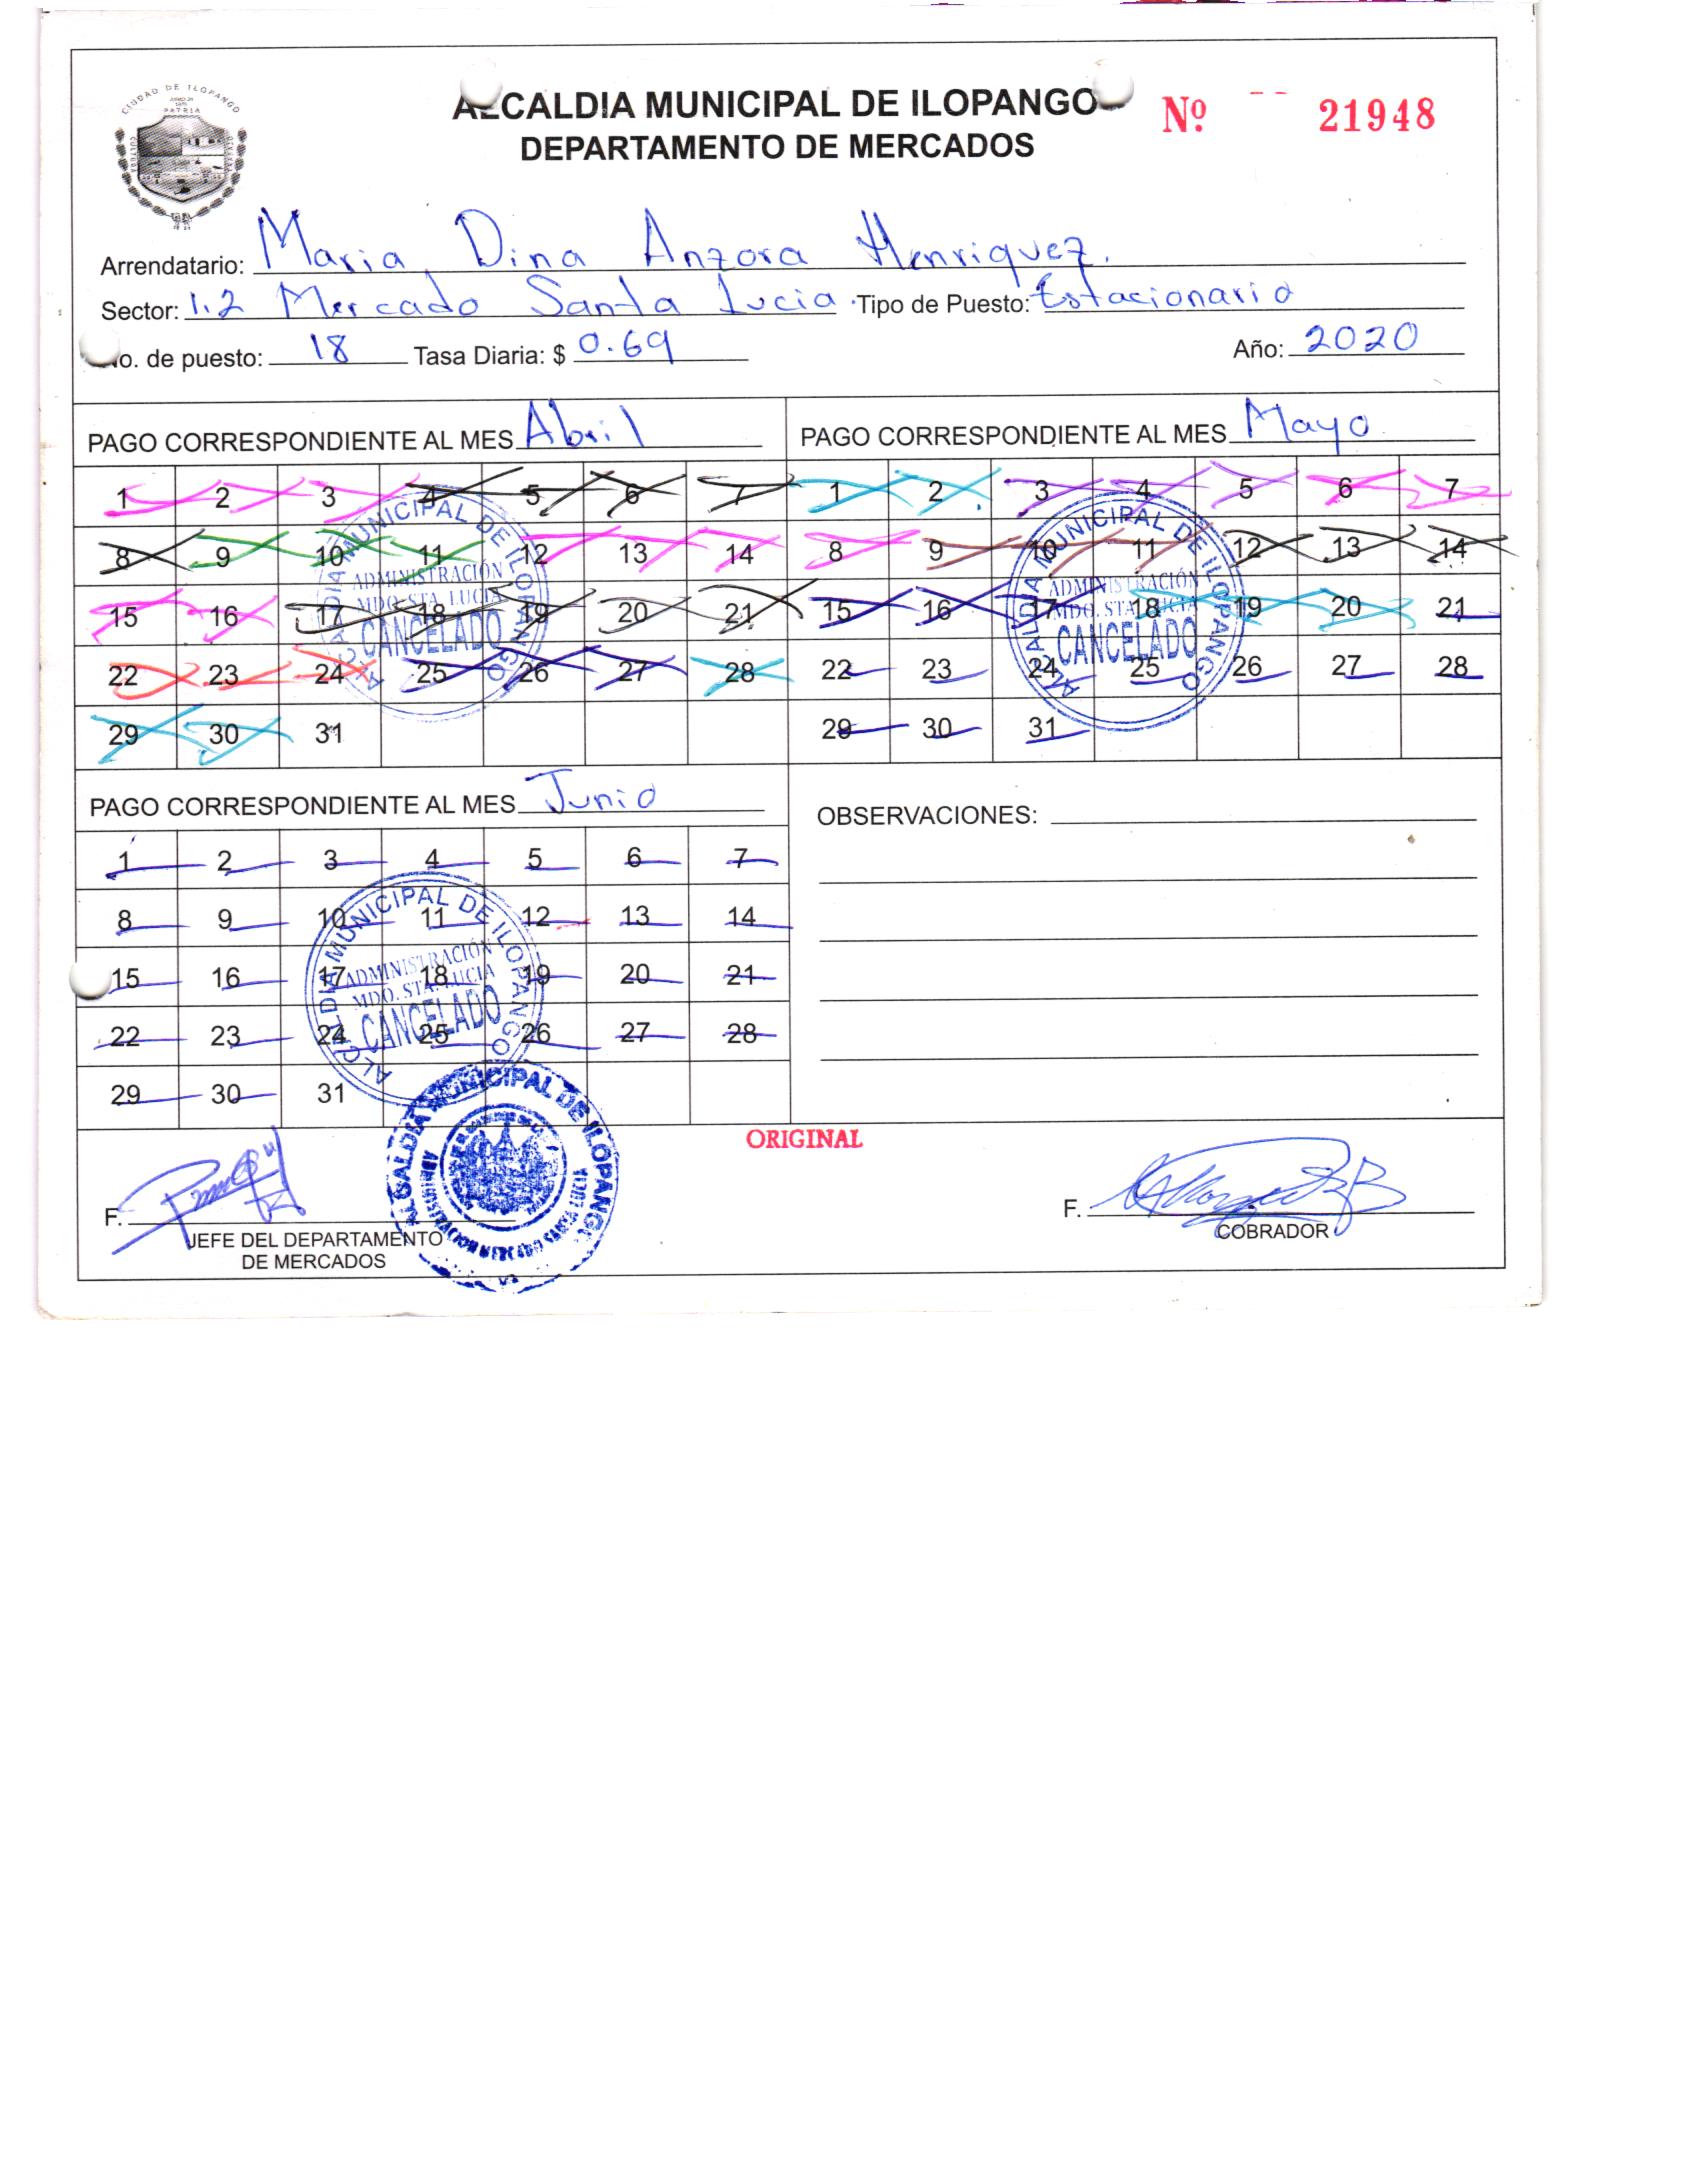 CIUDAD DE ILOPANGO
PATRIA
ALCALDIA MUNICIPAL DE ILOPANGO
DEPARTAMENTO DE MERCADOS
Nº 21948
Arrendatario: Maria Dina Anzora Henriquez.
Sector: 1.2 Mercado Santa Lucia. Tipo de Puesto: Estacionario
No. de puesto: 18 Tasa Diaria: $ 0.69 Año: 2020
PAGO CORRESPONDIENTE AL MES Abril
1 2 3 4 5 6 7
8 9 10 11 12 13 14
15 16 17 18 19 20 21
22 23 24 25 26 27 28
29 30 31
ALCALDIA MUNICIPAL DE ILOPANGO
ADMINISTRACIÓN
MDO. STA. LUCIA
CANCELADO
PAGO CORRESPONDIENTE AL MES Mayo
1 2 3 4 5 6 7
8 9 10 11 12 13 14
15 16 17 18 19 20 21
22 23 24 25 26 27 28
29 30 31
ALCALDIA MUNICIPAL DE ILOPANGO
ADMINISTRACIÓN
MDO. STA. LUCIA
CANCELADO
PAGO CORRESPONDIENTE AL MES Junio
1 2 3 4 5 6 7
8 9 10 11 12 13 14
15 16 17 18 19 20 21
22 23 24 25 26 27 28
29 30 31
ALCALDIA MUNICIPAL DE ILOPANGO
ADMINISTRACIÓN
MDO. STA. LUCIA
CANCELADO
OBSERVACIONES:
ORIGINAL
ALCALDIA MUNICIPAL DE ILOPANGO
F.
JEFE DEL DEPARTAMENTO
DE MERCADOS
F.
COBRADOR